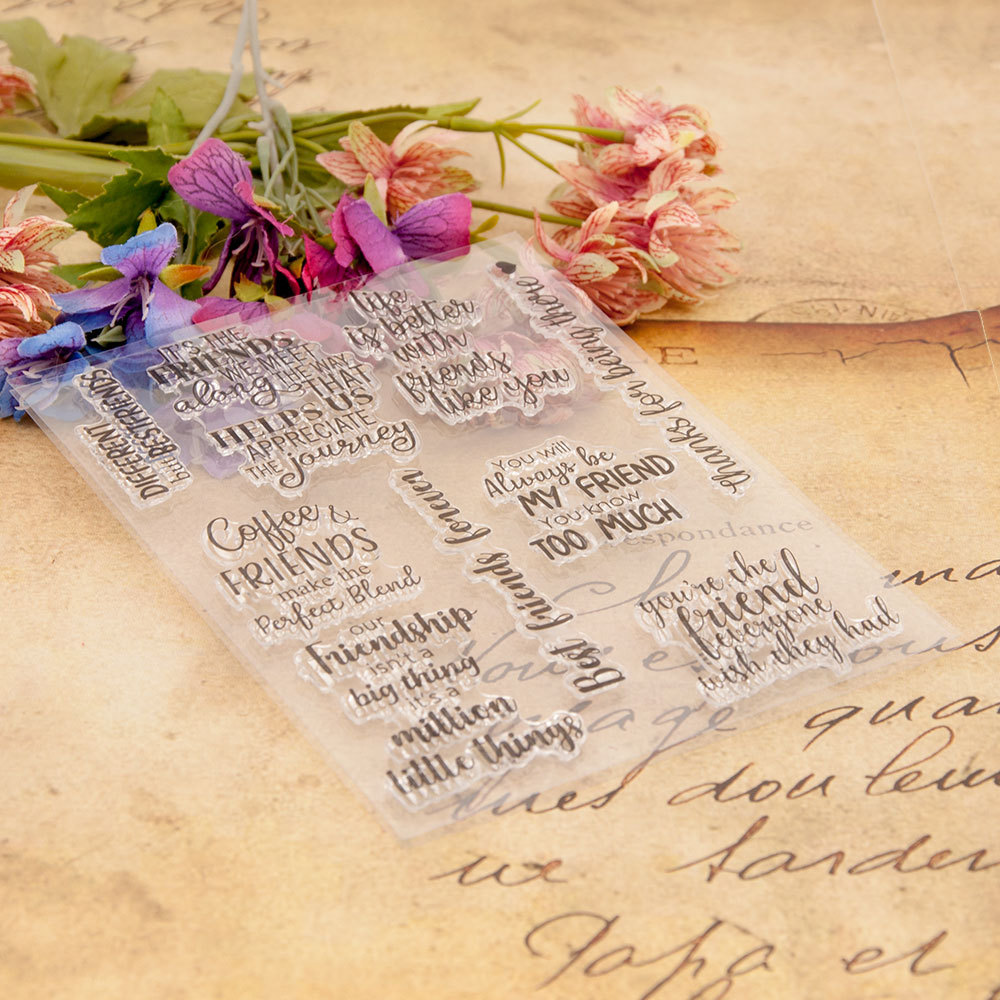 DIFFERENT
but BESTFRIENDS
IT'S THE
FRIENDS
WE MEET
along THE WAY
THAT
HELPS US
APPRECIATE
THE journey
life
is better
with
friends
like you
thanks for being there
Coffee &
FRIENDS
make the
Perfect Blend
Best friends forever
You will
Always be
MY FRIEND
You know
TOO MUCH
our
Friendship
isn't a
big thing
it's a
million
little things
you're the
friend
everyone
wish they had
respondance
quan
dou leur
tarder
Papa et